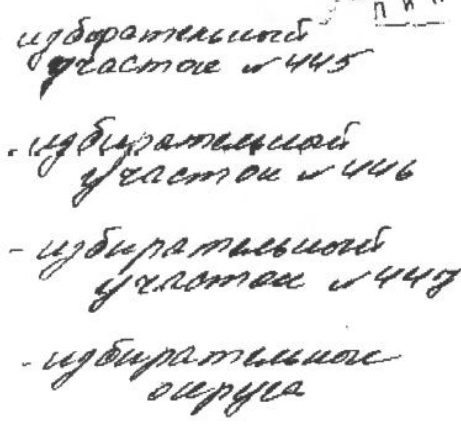 избирательный
участок № 445
- избирательный
участок № 446
- избирательный
участок № 447
- избирательные
округа